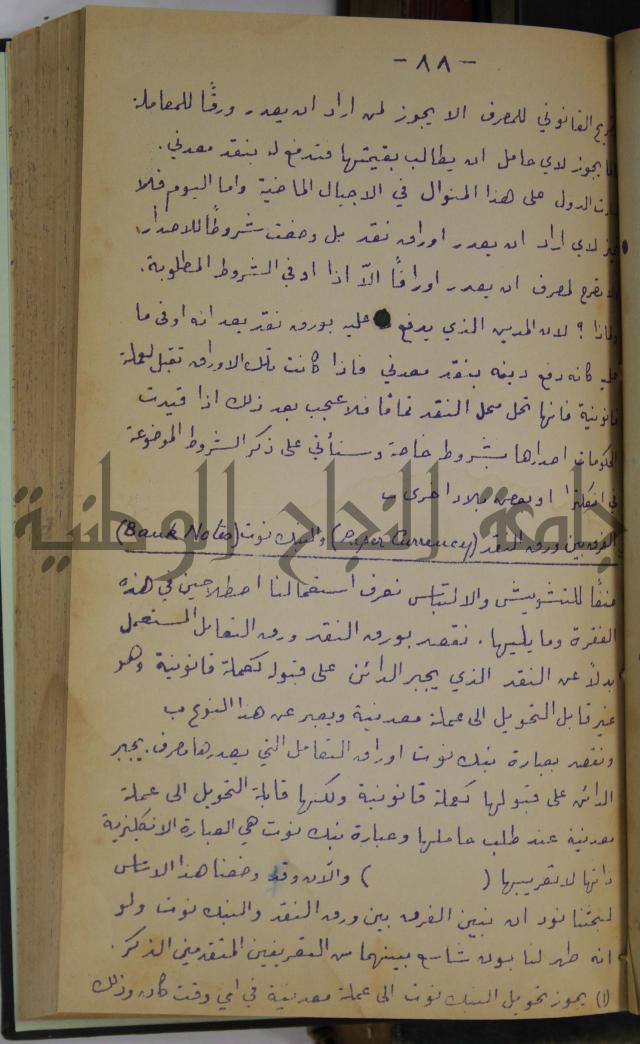 - ٨٨ -
القانوني للمصرف الا يجوز لمن اراد ان يصدر ورقًا للمعاملة
يجوز لاي حامل ان يطالب بقيمتها فتدفع له بنقد معدني.
الدول على هذا المنوال في الاجيال الماضية واما اليوم فلا
لاي اراد ان يصدر اوراق نقد بل وضعت شروطًا للاصدار
لمصرف ان يصدر اوراقًا الّا اذا اوفى الشروط المطلوبة.
ولماذا؟ لان المدين الذي يدفع عليه بورق نقد يعد انه اوفى ما
عليه كانه دفع دينه بنقد معدني فاذا كانت تلك الاوراق تقبل كعملة
قانونية فانها تحل محل النقد تمامًا فلا عجب بعد ذلك اذا قيدت
الحكومات اصدارها بشروط خاصة وسنأتي على ذكر الشروط الموضوعة
في انكلترا او بعض بلاد اخرى
الفرق بين ورق النقد (Paper Currency) والبنك نوت (Bank Notes)
منعًا للتشويش والالتباس نعرف استعمالنا اصطلاحين في هذه
الفقرة وما يليها. نقصد بورق النقد ورق التعامل المستعمل
بدلًا عن النقد الذي يجبر الدائن على قبوله كعملة قانونية وهو
غير قابل التحويل الى عملة معدنية ويعبر عن هذا النوع ب
ونقصد بعبارة بنك نوت اوراق التعامل التي يصدرها مصرف. يجبر
الدائن على قبولها كعملة قانونية ولكنها قابلة التحويل الى عملة
معدنية عند طلب حاملها وعبارة بنك نوت هي العبارة الانكليزية
ذاتها لا تعريبها ( ) والآن وقد وضعنا هذا الاساس
لبحثنا نود ان نبين الفرق بين ورق النقد والبنك نوت ولو
انه ظهر لنا بون شاسع بينهما من التعريفين المتقدمين الذكر.
(١) يجوز تحويل البنك نوت الى عملة معدنية في اي وقت كان وذلك
جامعة النجاح الوطنية